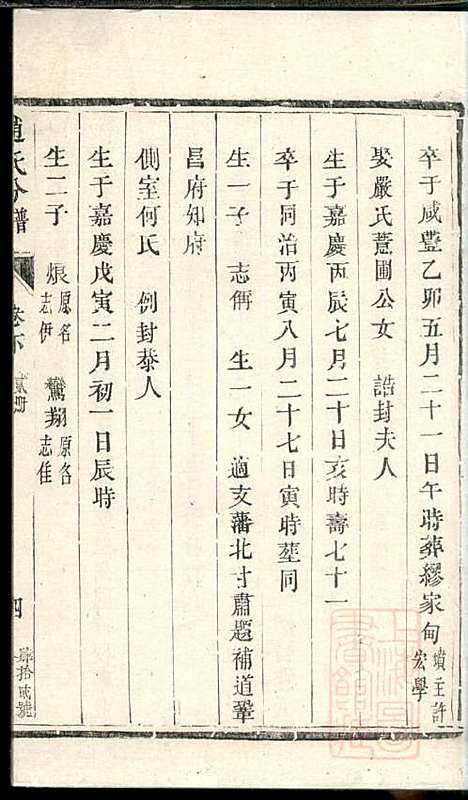 卒于咸豐乙卯五月二十一日午時葬繆家甸 墳主許宏學
娶嚴氏薏圃公女 誥封夫人
生于嘉慶丙辰七月二十日亥時壽七十一
卒于同治丙寅八月二十七日寅時葬同
生一子 志僩 生一女 適支藩北甘肅題補道鞏
昌府知府
側室何氏 例封恭人
生于嘉慶戊寅二月初一日辰時
生二子 烺 原名志伊 鸞翔 原名志佳
趙氏分譜 卷下 貳册 四 第拾貳號
上海圖書館藏